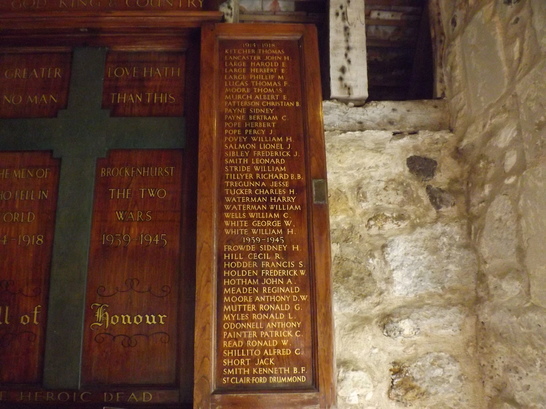 GOD, KING & COUNTRY
GREATER LOVE HATH
NO MAN THAN THIS
THE MEN OF BROCKENHURST
WHO FELL IN THE TWO
WORLD WARS
1914-1918 1939-1945
Roll of Honour
THE HEROIC DEAD
1914-1918
KITCHER THOMAS
LANCASTER JOHN H.
LARGE HAROLD E.
LARGE HERBERT E.
LARGE PHILLIP M.
LUCAS THOMAS F.
MOORE THOMAS
MURCH ALBERT E.
PATTERSON CHRISTIAN B
PAYNE SIDNEY
PAYNE BERTRAM C.
POPE HERBERT
POPE PERCY J.
POVEY WILLIAM H.
SALMON LIONEL J.
SIBLEY FREDERICK J.
SMITH LEONARD
STRIDE WILLIAM
TILLYER RICHARD E.B.
TREGUNNA JESSE
TUCKER CHARLES H.
WATERMAN HARRY
WATERMAN WILLIAM
WELLS WILLIAM C.
WHITE GEORGE W.
WHITE WILLIAM H.
1939-1945
FROWDE SIDNEY H.
HILL CECIL R.
HODDER FRANCIS S.
HOLDEN FREDERICK W.
HOTHAM JOHN A.
MEADEN REGINALD
MOORE ANTHONY D.W.
MUTTER RONALD G.
MYLES RONALD L.
ODONNELL ANTHONY
PAINTER PATRICK C.
READ RONALD W.
SHILLITO ALFRED C.
SHORT JACK
SMITH KENNETH B.F.
ST CLAIR-FORD DRUMMOND